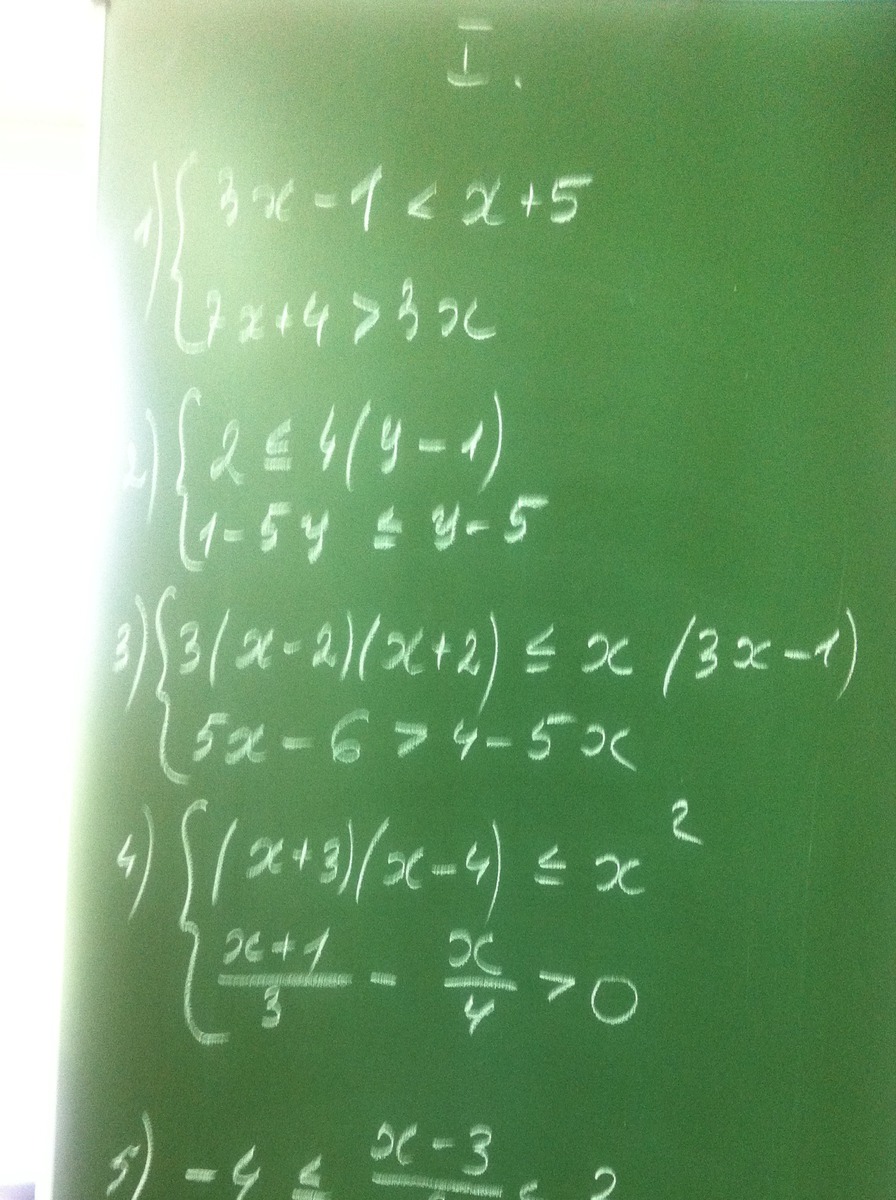 I.
1) { 3x - 1 < x + 5
7x + 4 > 3x
2) { 2 ≤ 4(y - 1)
1 - 5y ≤ y - 5
3) { 3(x - 2)(x + 2) ≤ x (3x - 1)
5x - 6 > 4 - 5x
4) { (x + 3)(x - 4) ≤ x²
(x + 1)/3 - x/4 > 0
5) -4 ≤ (x - 3)/